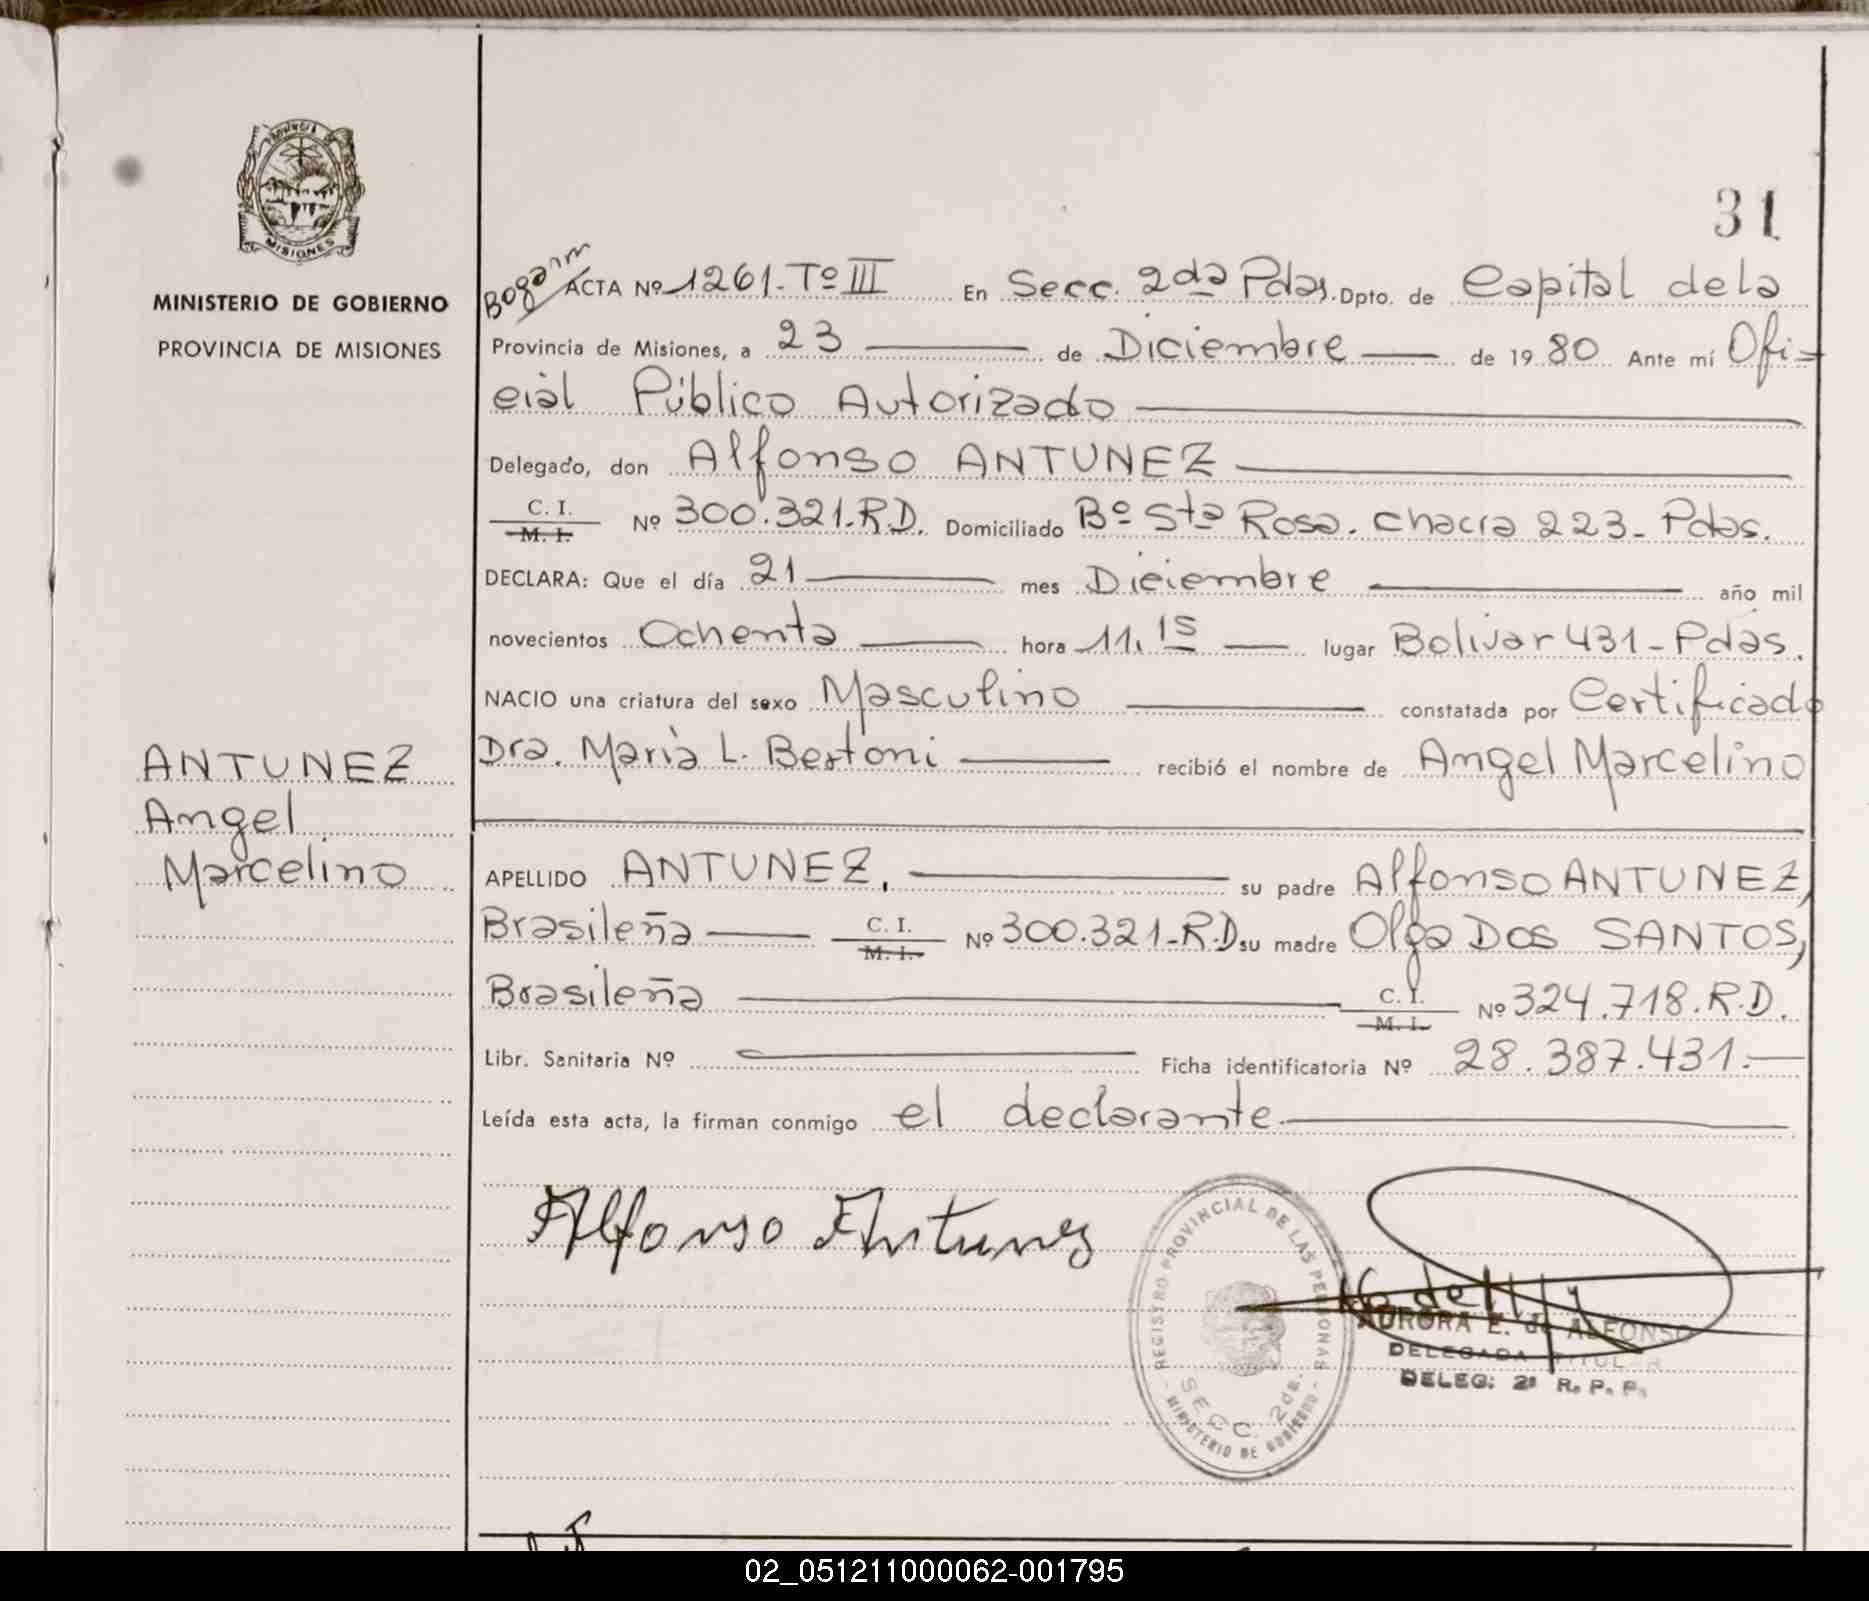 PROVINCIA DE
MISIONES
MINISTERIO DE GOBIERNO
PROVINCIA DE MISIONES
31
Bogarin
ACTA Nº 1261-Tº III En Secc. 2da Pdas. Dpto. de Capital de la
Provincia de Misiones, a 23 de Diciembre de 19 80 Ante mí Ofi=
cial Público Autorizado
Delegado, don Alfonso ANTUNEZ
C. I.
M. I. Nº 300.321-R.D. Domiciliado Bº Sta Rosa. chacra 223- Pdas.
DECLARA: Que el día 21 mes Diciembre año mil
novecientos Ochenta hora 11.15 lugar Bolivar 431- Pdas.
NACIO una criatura del sexo Masculino constatada por Certificado
Dra. Maria L. Bertoni recibió el nombre de Angel Marcelino
ANTUNEZ
Angel
Marcelino
APELLIDO ANTUNEZ, su padre Alfonso ANTUNEZ,
Brasileña C. I. M. I. Nº 300.321-R.D su madre Olga Dos SANTOS,
Brasileña C. I. M. I. Nº 324.718.R.D.
Libr. Sanitaria Nº Ficha identificatoria Nº 28.387.431.-
Leída esta acta, la firman conmigo el declarante
Alfonso Antunez
REGISTRO PROVINCIAL DE LAS PERSONAS
SECC. 2da.
MINISTERIO DE GOBIERNO
AURORA E. de ALFONSO
DELEGADA TITULAR
DELEG. 2ª R. P. P.
02_051211000062-001795